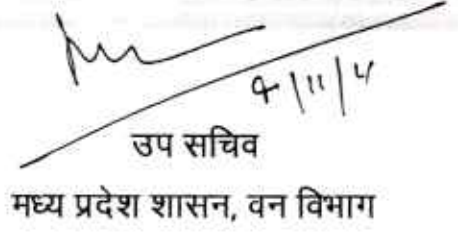 उप सचिव
मध्य प्रदेश शासन, वन विभाग